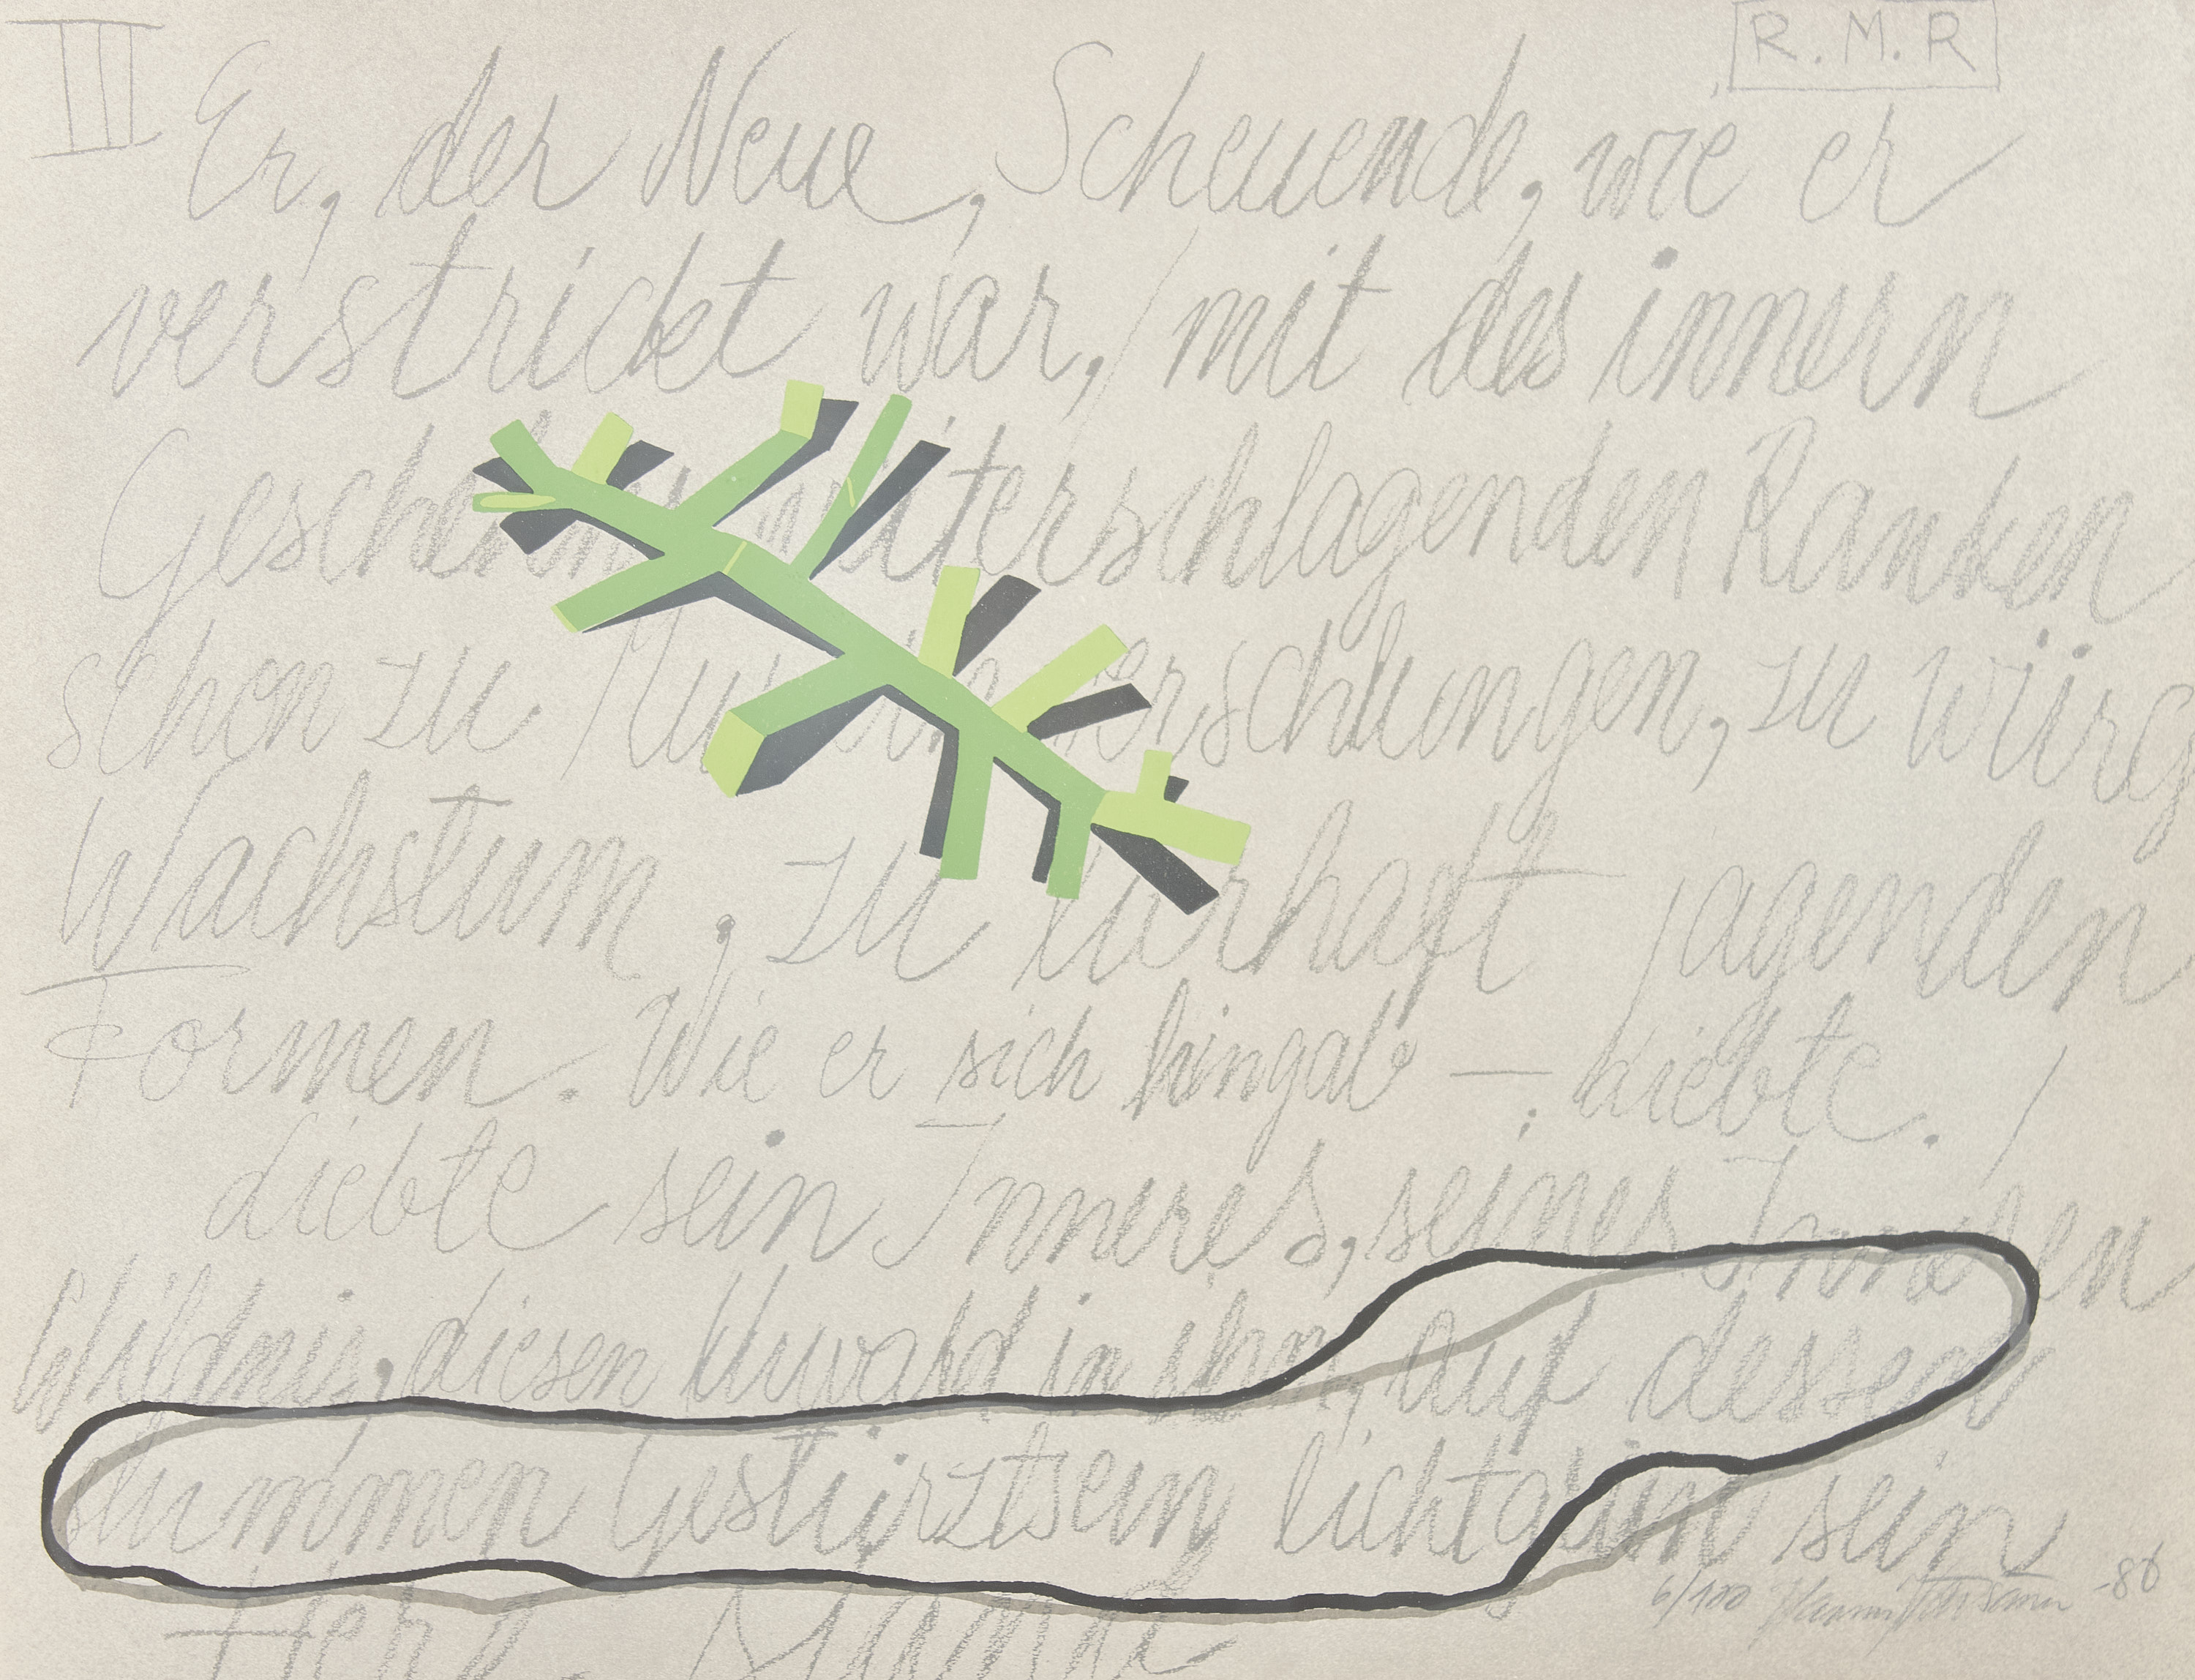 III
R. M. R
Er, der Neue, Scheuende, wie er
verstrickt war, / mit des innern
Gescheh weiterschlagenden Ranken
schon zu / Mu erschlungen, zu würg
Wachstum, zu / haft / jagenden
Formen. Wie er sich hingab —. Liebte. /
Liebte sein Inneres, seines Inneren
Wildnis, diesen Urwald in ihm, auf dessen
stummen Gestürztsein lichtgrün sein
Herz stand
6/100 -86